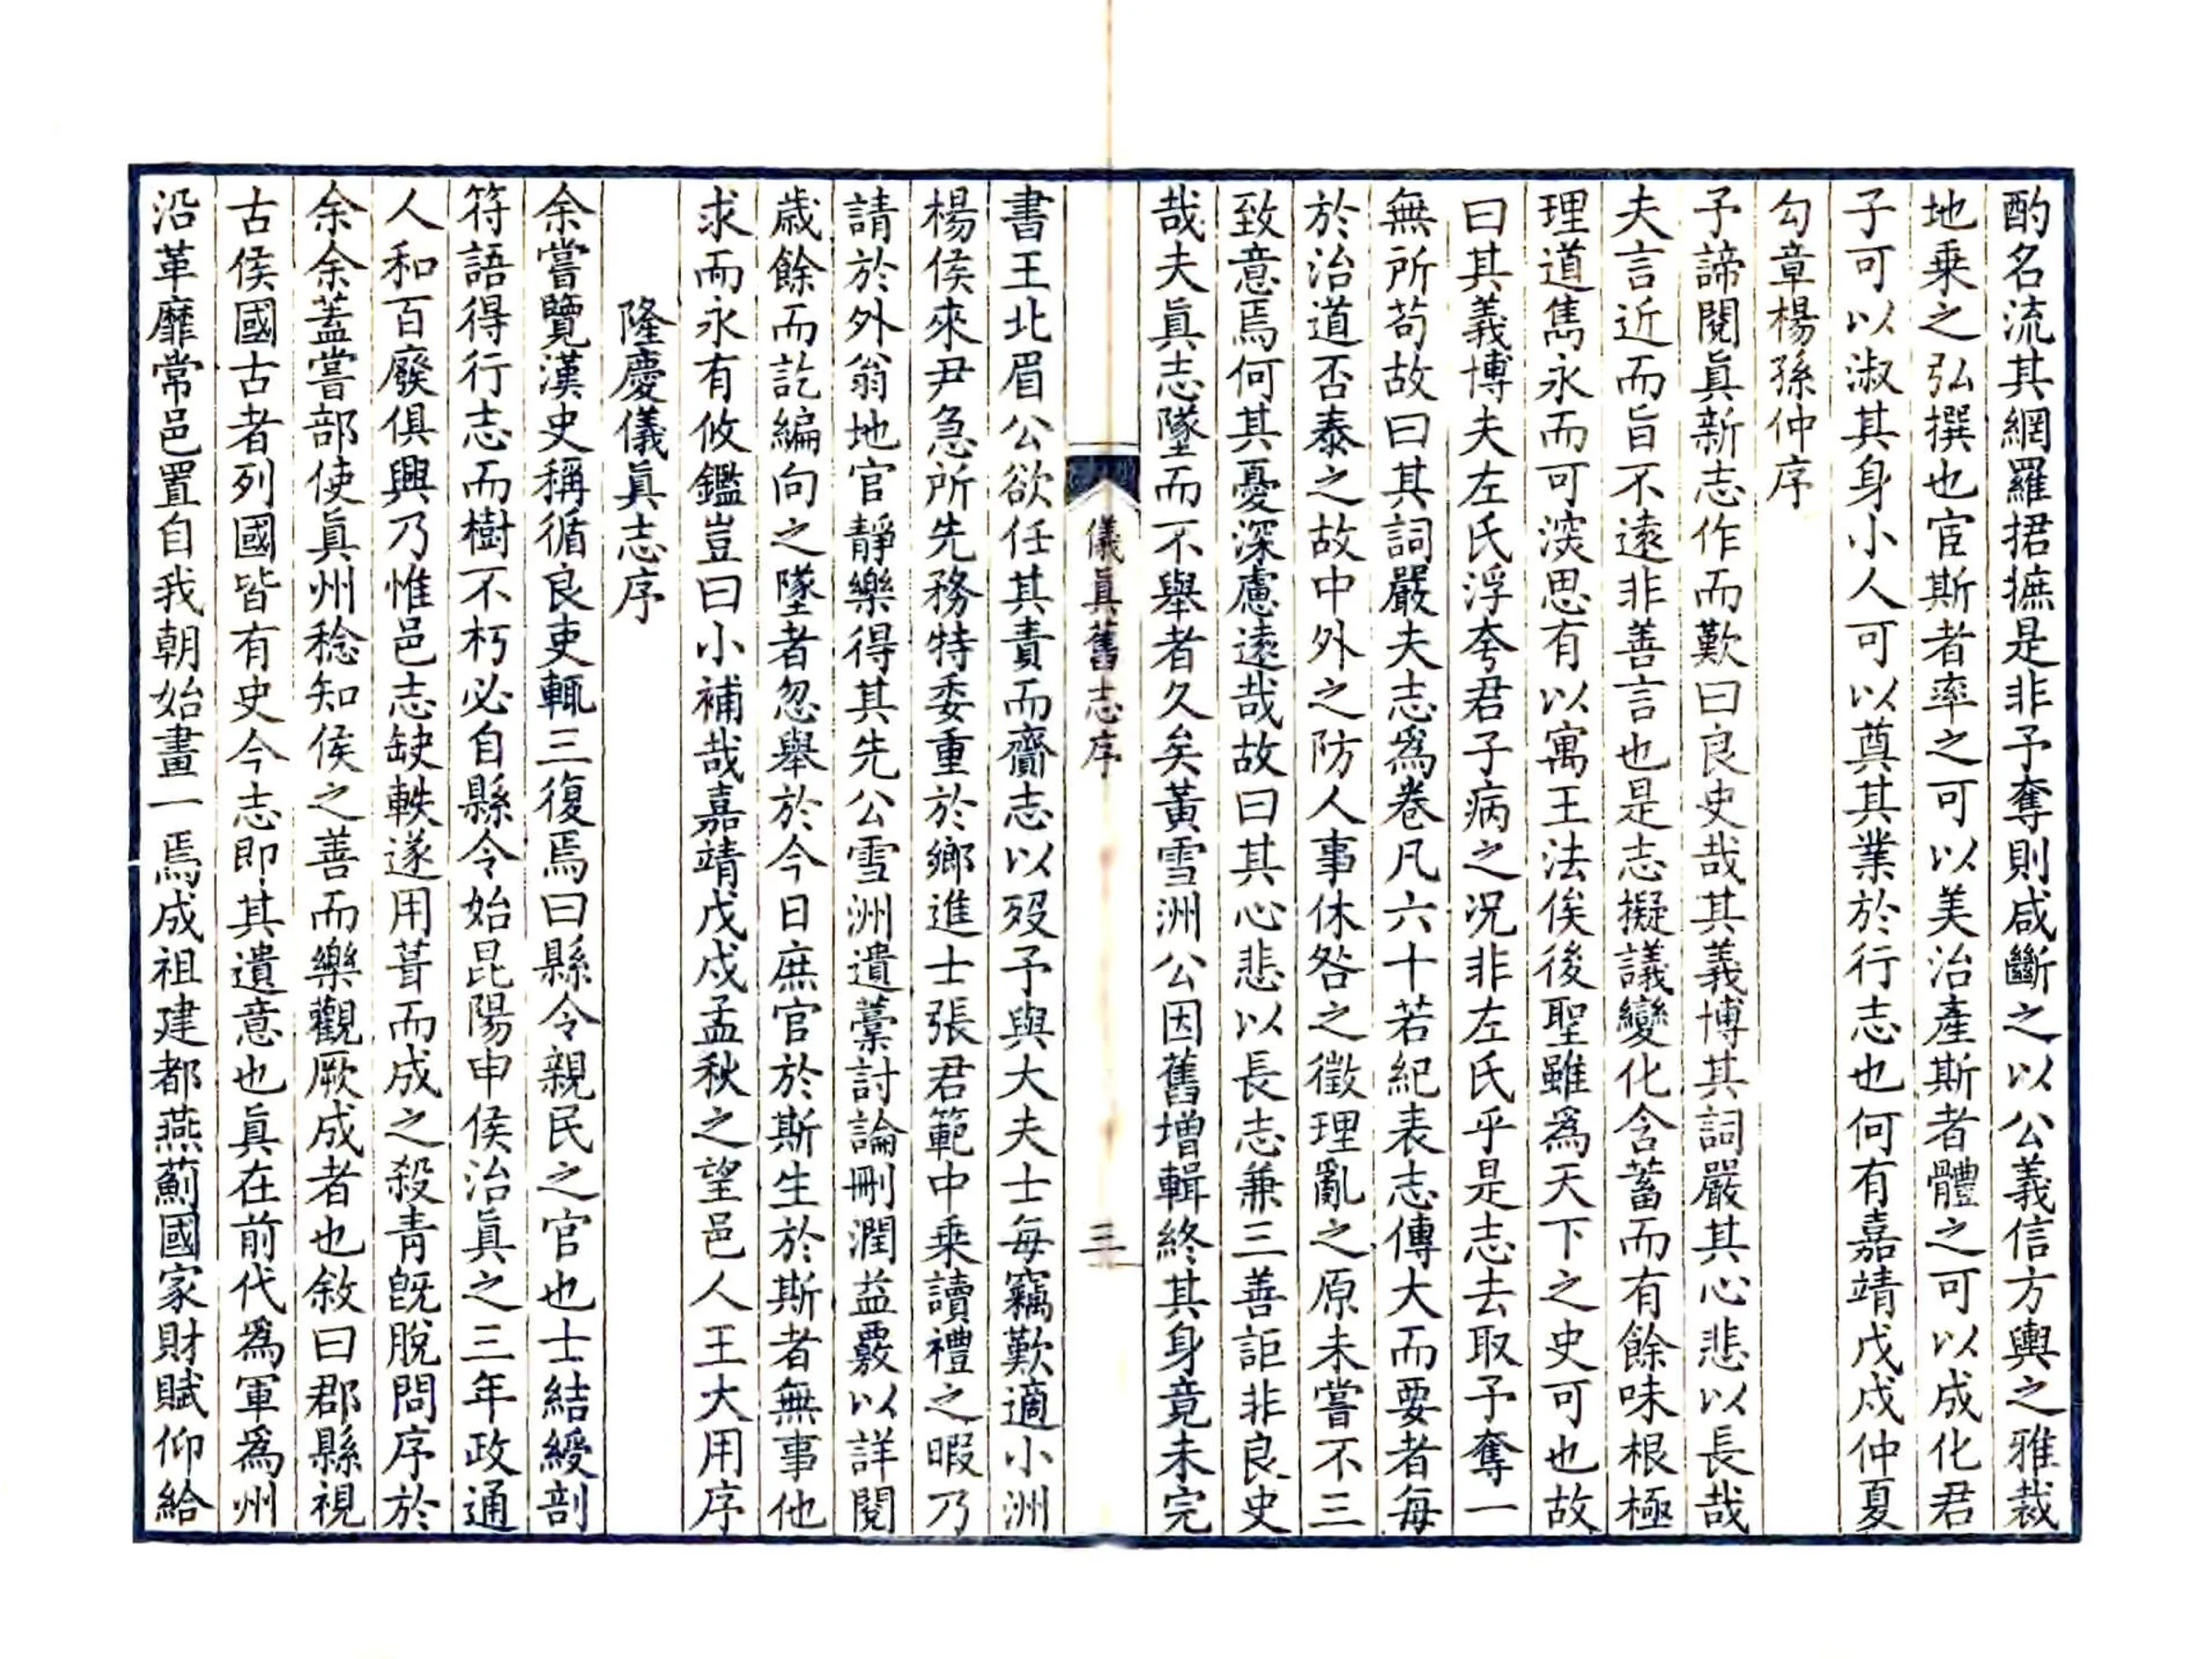 酌名流其網羅捃摭是非予奪則咸斷之以公義信方輿之雅裁
地乗之弘撰也宦斯者率之可以美治產斯者體之可以成化君
子可以淑其身小人可以奠其業於行志也何有嘉靖戊戌仲夏
勾章楊孫仲序
予諦閱眞新志作而歎曰良史哉其義博其詞嚴其心悲以長哉
夫言近而旨不遠非善言也是志擬議變化含蓄而有餘味根極
理道雋永而可湥思有以寓王法俟後聖雖為天下之史可也故
曰其義博夫左氏浮夸君子病之况非左氏乎是志去取予奪一
無所苟故曰其詞嚴夫志爲卷凡六十若紀表志傳大而要者每
於治道否泰之故中外之防人事休咎之徵理亂之原未嘗不三
致意焉何其憂深慮遠哉故曰其心悲以長志兼三善詎非良史
哉夫眞志墜而不舉者久矣黃雪洲公因舊增輯終其身竟未完
儀眞舊志序
三
書王北眉公欲任其責而齎志以歿予與大夫士每竊歎適小洲
楊侯來尹急所先務特委重於鄉進士張君範中乗讀禮之暇乃
請於外翁地官靜樂得其先公雪洲遺藁討論刪潤益覈以詳閱
歲餘而訖編向之墜者忽舉於今日庶官於斯生於斯者無事他
求而永有攸鑑豈曰小補哉嘉靖戊戌孟秋之望邑人王大用序
隆慶儀眞志序
余嘗覽漢史稱循良吏輒三復焉曰縣令親民之官也士結綬剖
符語得行志而樹不朽必自縣令始昆陽申侯治眞之三年政通
人和百廢俱興乃惟邑志缺軼遂用葺而成之殺青旣脫問序於
余余蓋嘗部使眞州稔知侯之善而樂觀厥成者也敘曰郡縣視
古侯國古者列國皆有史今志即其遺意也眞在前代爲軍爲州
沿革靡常邑置自我朝始畫一焉成祖建都燕薊國家財賦仰給